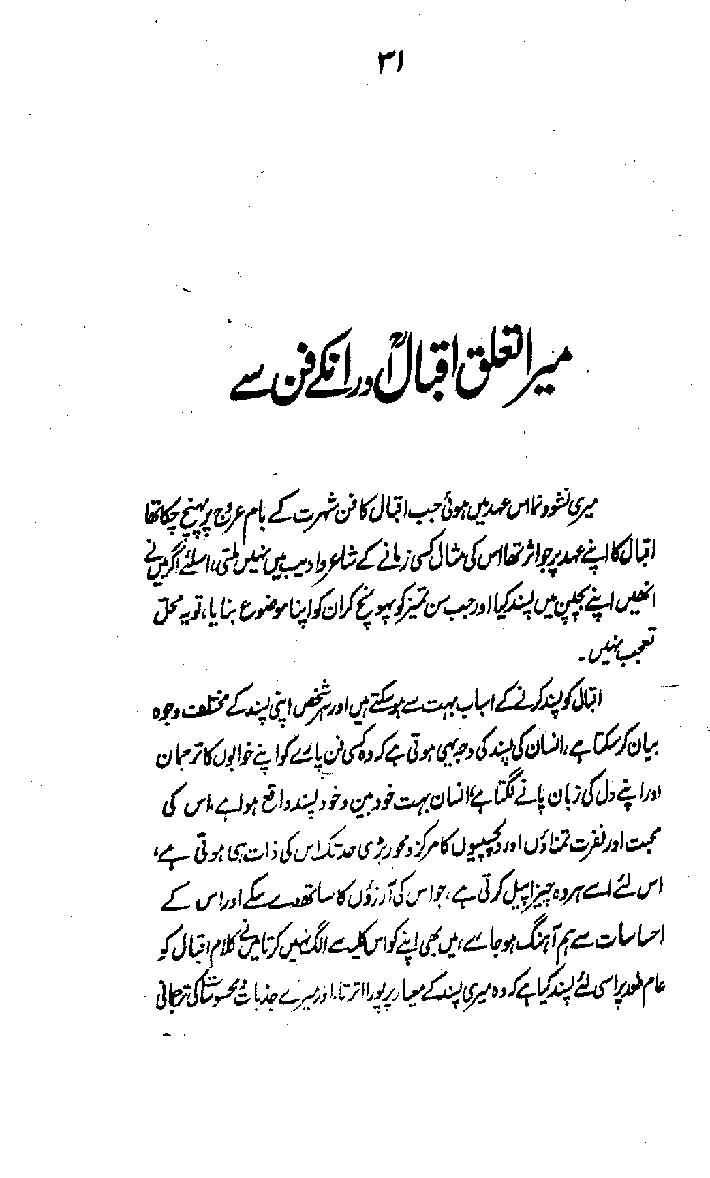 ۳۱
میرا تعلق اقبالؒ اور انکے فن سے
میری نشوونما اس عہد میں ہوئی جب اقبال کا فن شہرت کے بام عروج پر پہنچ چکا تھا
اقبال کا اپنے عہد پر جو اثر تھا اس کی مثال کسی زمانے کے شاعر و ادیب میں نہیں ملتی، اسلئے اگر میں نے
انھیں اپنے بچپن میں پسند کیا اور جب سن تمیز کو پہونچ کر ان کو اپنا موضوع بنایا، تو یہ محل
تعجب نہیں۔
اقبال کو پسند کرنے کے اسباب بہت سے ہو سکتے ہیں اور ہر شخص اپنی پسند کے مختلف وجوہ
بیان کر سکتا ہے، انسان کی پسند کی وجہ یہی ہوتی ہے کہ وہ کسی فن پارے کو اپنے خوابوں کا ترجمان
اور اپنے دل کی زبان پانے لگتا ہے، انسان بہت خود بین و خود پسند واقع ہوا ہے، اس کی
محبت اور نفرت تمناؤں اور دلچسپیوں کا مرکز و محور بڑی حد تک اس کی ذات ہی ہوتی ہے،
اس لئے اسے ہر وہ چیز اپیل کرتی ہے، جو اس کی آرزؤں کا ساتھ دے سکے اور اس کے
احساسات سے ہم آہنگ ہو جائے، میں بھی اپنے کو اس کلیہ سے الگ نہیں کرتا میں نے کلام اقبال کو
عام طور پر اسی لئے پسند کیا ہے کہ وہ میری پسند کے معیار پر پورا اترتا، اور میرے جذبات و محسوسات کی ترجمانی